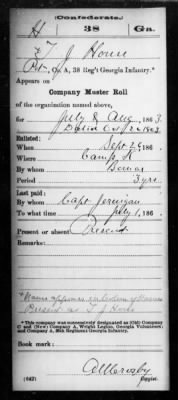 (Confederate.)
H 38 Ga.
* T J House
Pvt, Co. A, 38 Reg't Georgia Infantry.*
Appears on
Company Muster Roll
of the organization named above,
for July & Aug, 1863.
Dated Oct 26 1863
Enlisted:
When Sept 26 186
Where Camp
By whom
Period 3 yrs
Last paid:
By whom Capt Jernigan
To what time July 1, 186
Present or absent Present
Remarks:
* Name appears
Present as T J
*This company was successively designated as (Old) Company
C and (New) Company A, Wright Legion, Georgia Volunteers;
and Company A, 38th Regiment Georgia Infantry.
Book mark:
(642)
Copyist.